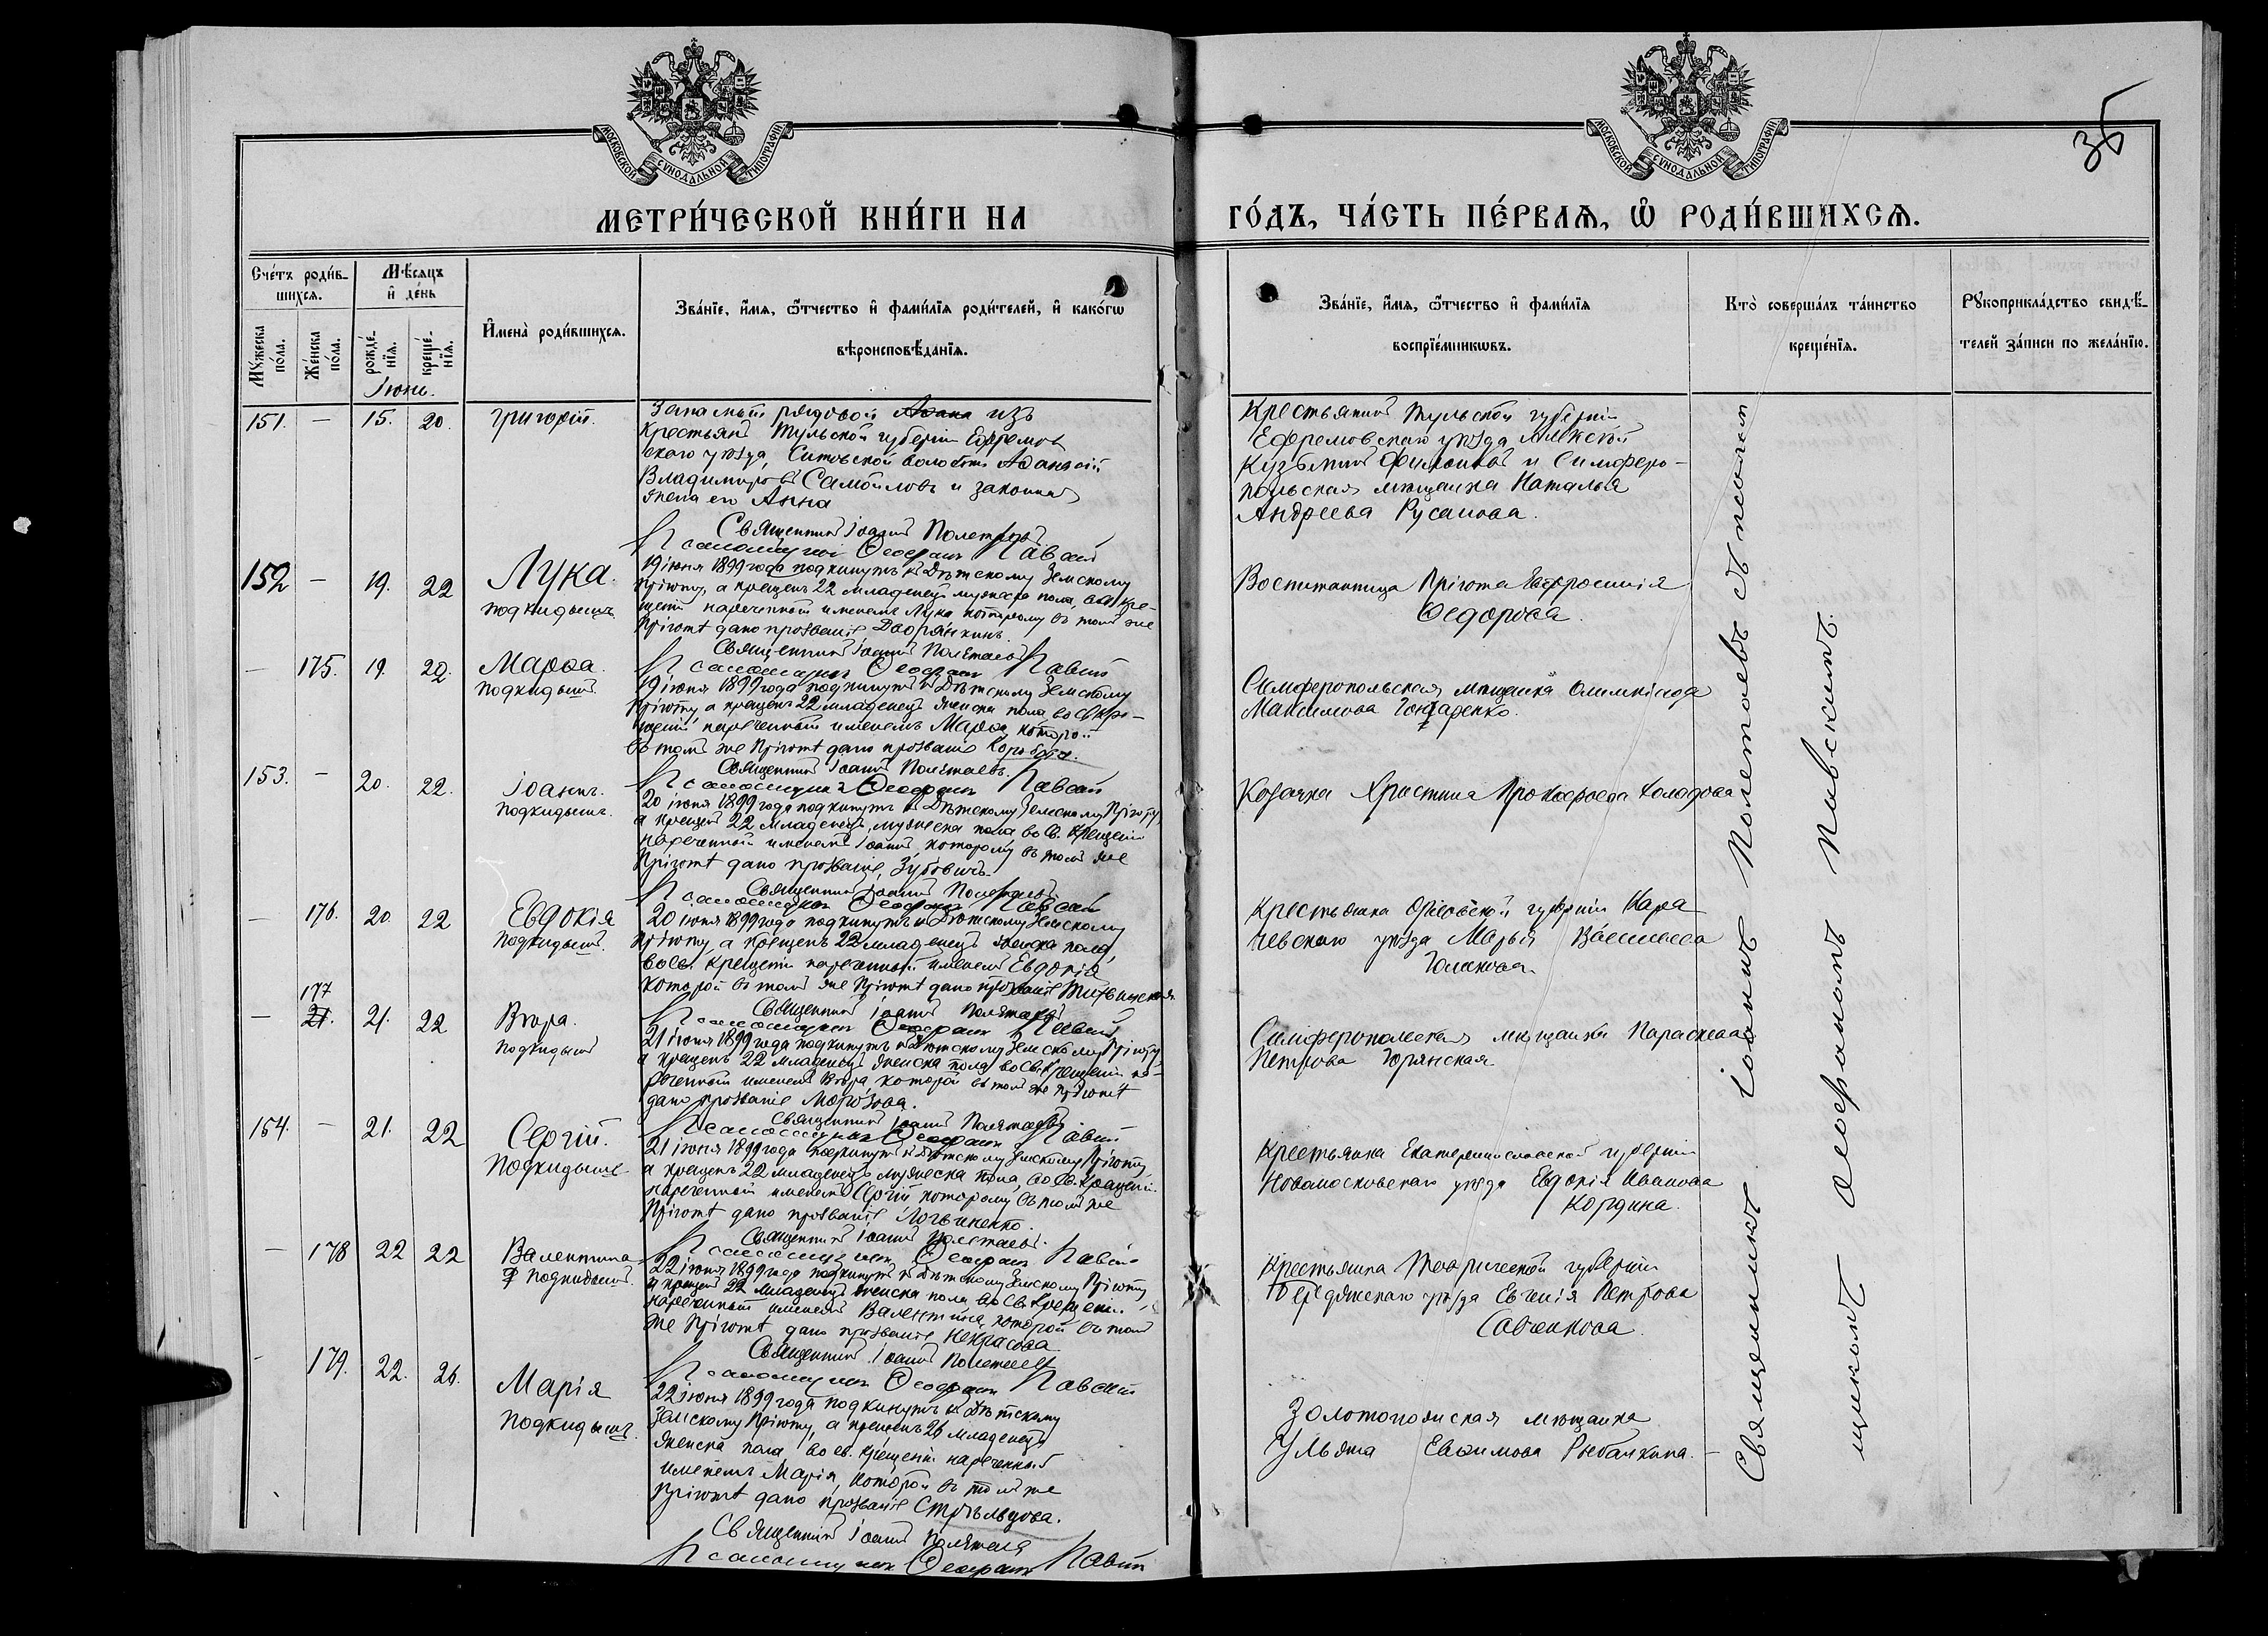 МОСКОВСКОЙ СѴНОДАЛЬНОЙ ТИПОГРАФІИ
МОСКОВСКОЙ СѴНОДАЛЬНОЙ ТИПОГРАФІИ
35
МЕТРИ́ЧЕСКОЙ КНИ́ГИ НА
ГО́ДЪ, ЧА́СТЬ ПЕ́РВАѦ, Ѡ҆ РОДИ́ВШИХСѦ.
Сче́тъ роди́вшихся.
Мѣ́сяцъ и҆ де́нь
И҆мена̀ роди́вшихся.
Зва́нїе, и҆́мя, ѻ҆́тчество и҆ фами́лїя роди́телей, и҆ како́гѡ
вѣроисповѣ́данїя.
Зва́нїе, и҆́мя, ѻ҆́тчество и҆ фами́лїя
воспрїе́мникѡвъ.
Кто̀ соверша́лъ та́инство
креще́нїя.
Рꙋкоприкла́дство свидѣ́-
телей за́писи по жела́нїю.
Мꙋ́жеска по́ла.
Же́нска по́ла.
рожде́-нїя.
креще́-нїя.
Іюнь.
151. — 15. 20. Григорій.
Запасный рядовой изъ
крестьянъ Тульской губерніи Ефремов
скаго уѣзда, Ситовской волости Афанасій
Владиміровъ Самойловъ и законная
жена его Анна
Крестьянинъ Тульской губерніи
Ефремовскаго уѣзда Алексѣй
Кузьминъ Филоновъ и Симферо-
польская мѣщанка Наталья
Андреева Русанова.
Священникъ Іоаннъ Полетаевъ
Псаломщикъ Ѳеофанъ Павскій
152 — 19. 22 Лука.
подкидышъ
19 іюня 1899 года подкинутъ къ Дѣтскому Земскому
Пріюту, а крещенъ 22 младенецъ мужеска пола, во св. кре-
щеніи нареченный именемъ Лука которому въ томъ же
Пріютѣ дано прозваніе Дворянкинъ.
Воспитанница Пріюта Евфросинія
Ѳедорова.
Священникъ Іоаннъ Полетаевъ
Псаломщикъ Ѳеофанъ Павскій
— 175. 19. 22. Марѳа.
подкидышъ
19 іюня 1899 года подкинутъ къ Дѣтскому Земскому
Пріюту, а крещенъ 22 младенецъ женска пола, во св. кре-
щеніи нареченный именемъ Марѳа, которой
въ томъ же Пріютѣ дано прозваніе
Симферопольская мѣщанка Олимпіада
Максимова Гончаренко.
Священникъ Іоаннъ Полетаевъ.
Псаломщикъ Ѳеофанъ Павскій
153. — 20. 22. Іоаннъ.
подкидышъ.
20 іюня 1899 года подкинутъ къ Дѣтскому Земскому Пріюту,
а крещенъ 22 младенецъ, мужеска пола во св. Крещеніи
нареченный именемъ Іоаннъ которому въ томъ же
Пріютѣ дано прозваніе, Зубовичъ
Козачка Христина Прокофьева Холодова
Священникъ Іоаннъ Полетаевъ
Псаломщикъ Ѳеофанъ Павскій
— 176. 20. 22 Евдокія
подкидышъ.
20 іюня 1899 года подкинутъ къ Дѣтскому Земскому
Пріюту, а крещенъ 22 младенецъ женска пола,
во св. крещеніи нареченный именемъ Евдокія
которой въ томъ же Пріютѣ дано прозваніе
Крестьянка Орловской губерніи Кара
чевскаго уѣзда Марья Васильева
Священникъ Іоаннъ Полетаевъ
Псаломщикъ Ѳеофанъ Павскій
177
— 21. 21. 22 Вѣра.
подкидышъ
21 іюня 1899 года подкинутъ къ Дѣтскому Земскому Пріюту,
а крещенъ 22 младенецъ женска пола во св. Крещеніи на-
реченный именемъ Вѣра, которой въ томъ же Пріютѣ
дано прозваніе Морозова.
Симферопольская мѣщанка Параскева
Петрова
Священникъ Іоаннъ Полетаевъ
Псаломщикъ Ѳеофанъ Павскій
154. — 21. 22 Сергій.
Подкидышъ
21 іюня 1899 года подкинутъ къ Дѣтскому Земскому Пріюту,
а крещенъ 22 младенецъ мужеска пола, во св. Крещеніи
нареченный именемъ Сергій которому въ томъ же
Пріютѣ дано прозваніе Логвиненко.
Крестьянка Екатеринославской губерніи
Новомосковскаго уѣзда Евдокія Иванова
Кордина.
Священникъ Іоаннъ Полетаевъ.
Псаломщикъ Ѳеофанъ Павскій
— 178 22 22 Валентина
подкидышъ.
22 іюня 1899 года подкинутъ къ Дѣтскому Земскому Пріюту
а крещенъ 22 младенецъ женска пола, во св. Крещеніи
нареченный именемъ Валентина, которой въ томъ
же Пріютѣ дано прозваніе Некрасова
Крестьянка Таврической губерніи
Бердянскаго уѣзда Евгенія Петрова
Савенкова.
Священникъ Іоаннъ Полетаевъ
Псаломщикъ Ѳеофанъ Павскій
— 179. 22. 26. Марія
подкидышъ.
22 іюня 1899 года подкинутъ къ Дѣтскому
Земскому Пріюту, а крещенъ 26 младенецъ
женска пола во св. крещеніи нареченный
именемъ Марія, которой въ томъ же
Пріютѣ дано прозваніе Стрѣльцова.
Золотоношская мѣщанка
Ульяна Евѳимова Рыбалкина.
Священникъ Іоаннъ Полетаевъ
Псаломщикъ Ѳеофанъ Павскій
Священникъ Іоаннъ Полетаевъ съ псалом
щикомъ Ѳеофаномъ Павскимъ.